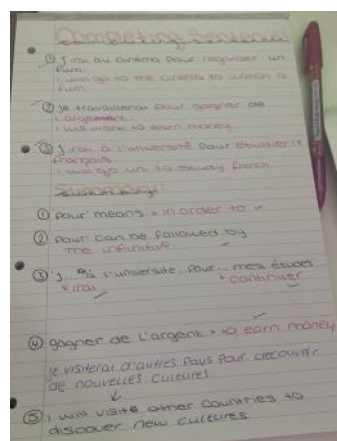 Completing Sentences:
① J'irai au cinéma pour regarder un
film.
I will go to the cinema to watch a
film.
② je travaillerai pour gagner de
l'argent.
I will work to earn money.
③ J'irai à l'université pour étudier le
français
I will go uni to study french
Summary:
① 'pour' means = in order to
② pour can be followed by
the infinitive
③ j... à l'université pour... mes études
irai continuer
④ gagner de L'argent = to earn money
je visiterai d'autres pays pour découvrir
de nouvelles cultures.
⑤ I will visite other countries to
discover new cultures.